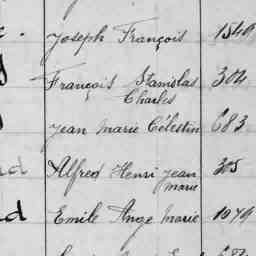 Joseph François 1549
François Stanislas 304
Charles
Jean Marie Célestin 683
Alfred Henri Jean 305
Marie
Emile Ange Marie 1079